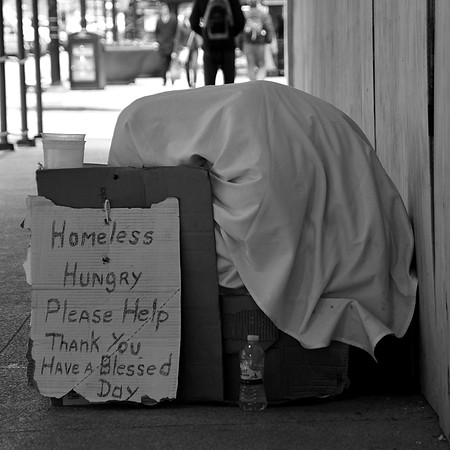 Homeless
Hungry
Please Help
Thank You
Have a Blessed
Day